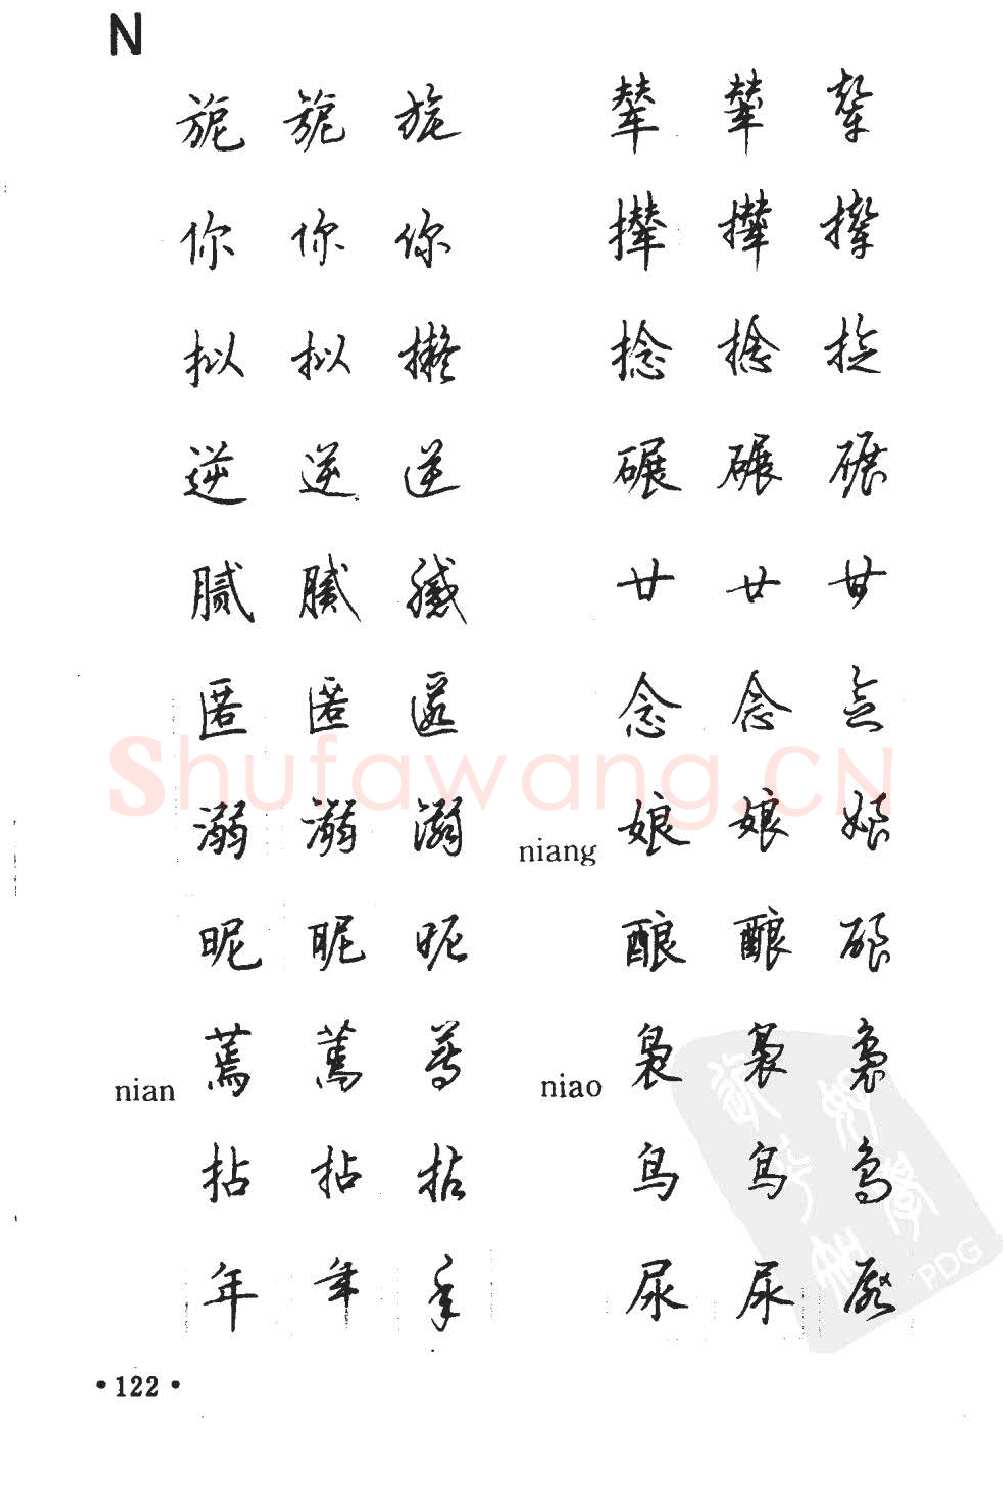 N
旎 旎 旎 辇 辇 辇
你 你 你 撵 撵 撵
拟 拟 擬 捻 捻 捻
逆 逆 逆 碾 碾 碾
腻 腻 膩 廿 廿 廿
匿 匿 匿 念 念 念
溺 溺 溺 niang 娘 娘 娘
昵 昵 昵 酿 酿 酿
nian 蔫 蔫 蔫 niao 袅 袅 袅
拈 拈 拈 鸟 鸟 鸟
年 年 年 尿 尿 尿
Shufawang.CN
PDG
·122·